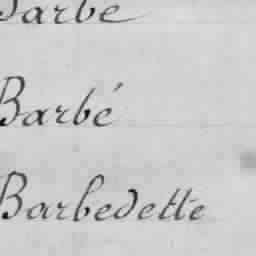 Barbe
Barbé
Barbedette